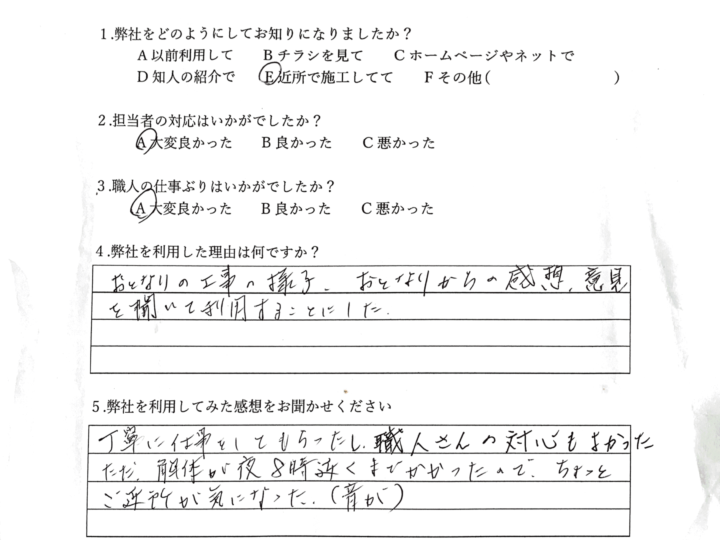 1.弊社をどのようにしてお知りになりましたか？
A 以前利用して　B チラシを見て　C ホームページやネットで
D 知人の紹介で　E 近所で施工してて　F その他(　　　　　　　　)
2.担当者の対応はいかがでしたか？
A 大変良かった　B 良かった　C 悪かった
3.職人の仕事ぶりはいかがでしたか？
A 大変良かった　B 良かった　C 悪かった
4.弊社を利用した理由は何ですか？
おとなりの工事の様子、おとなりからの感想、意見
を聞いて利用することにした.
5.弊社を利用してみた感想をお聞かせください
丁寧に仕事をしてもらったし、職人さんの対応もよかった
ただ、解体が夜8時近くまでかかったので、ちょっと
ご近所が気になった.(音が)